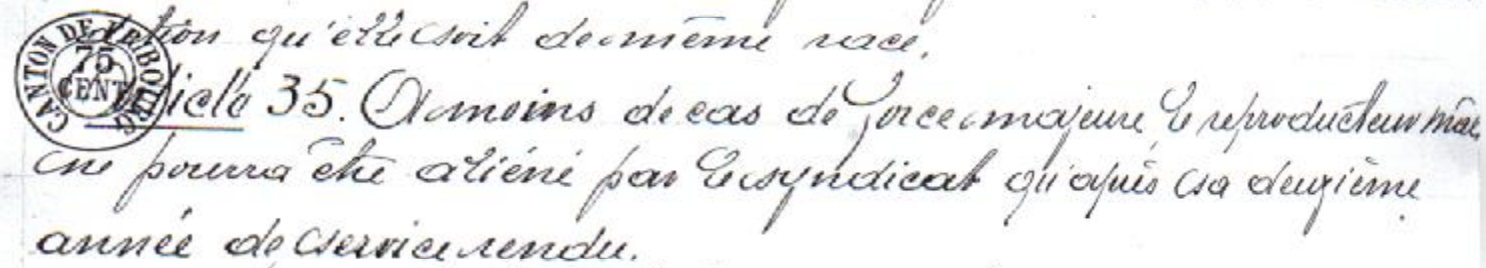 CANTON DE FRIBOURG
75
CENT
dition qu'elle soit de même race.
Article 35. A moins de cas de force majeure le reproducteur mâle
ne pourra être aliéné par le syndicat qu'après sa deuxième
année de service rendu.